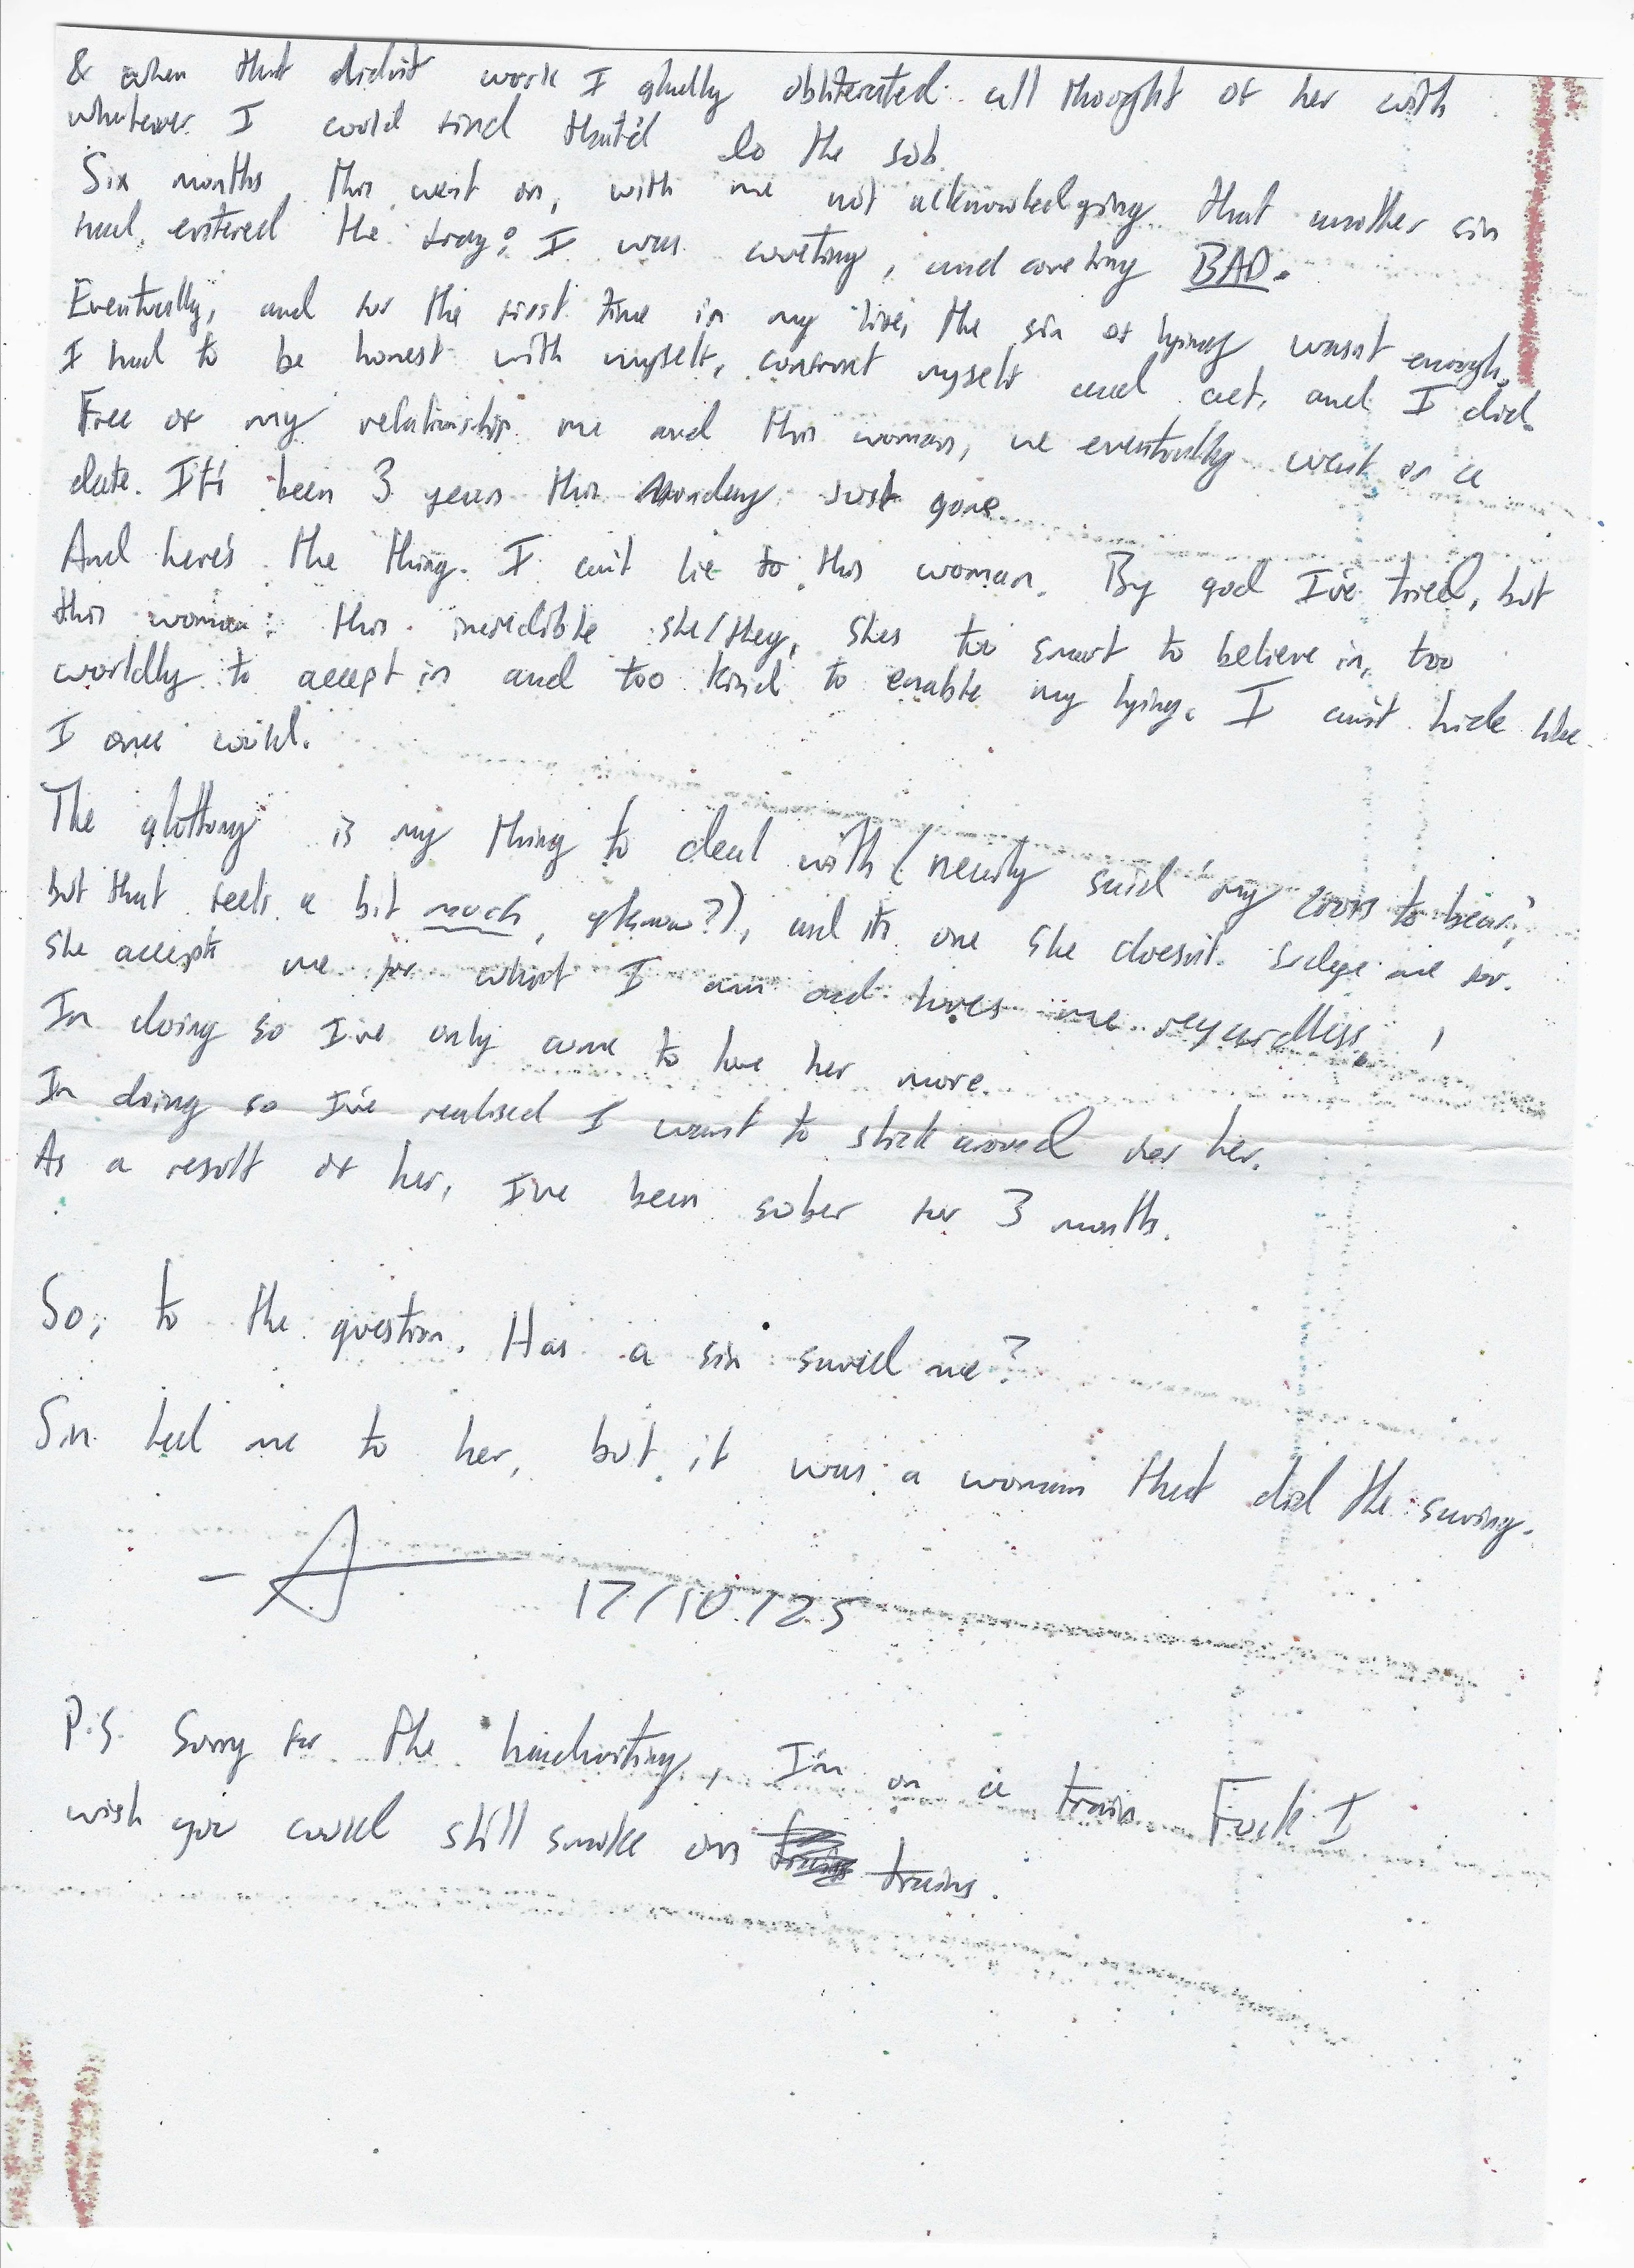 & when that didn't work I gladly obliterated all thought of her with
whatever I could find that'd do the job.
Six months this went on, with me not acknowledging that another sin
had entered the fray: I was coveting, and coveting BAD.
Eventually, and for the first time in my life, the sin of lying wasn't enough.
I had to be honest with myself, confront myself and act, and I did.
Free of my relationship me and this woman, we eventually went on a
date. It's been 3 years this Monday just gone.
And here's the thing. I can't lie to this woman. By god I've tried, but
this woman: this incredible she/they, shes too smart to believe in, too
worldly to accept in and too kind to enable my lying. I can't hide like
I once could.
The gluttony is my thing to deal with (nearly said 'my cross to bear,'
but that feels a bit much, y'know?), and its one she doesn't judge me for.
She accepts me for what I am and loves me regardless.
In doing so I've only come to love her more.
In doing so I've realised I want to stick around for her.
As a result of her, I've been sober for 3 months.
So, to the question. Has a sin saved me?
Sin led me to her, but it was a woman that did the saving.
- A 17/10/25
P.S. Sorry for the handwriting, I'm on a train. Fuck I
wish you could still smoke on trains.